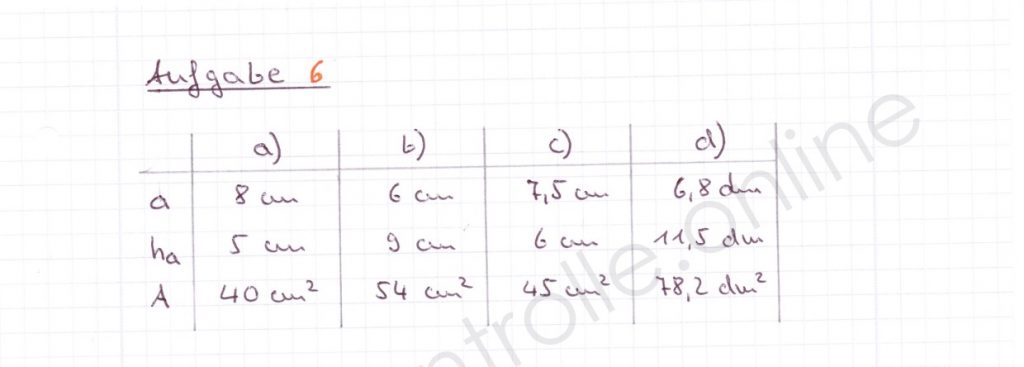 Aufgabe 6
a) b) c) d)
a 8 cm 6 cm 7,5 cm 6,8 dm
ha 5 cm 9 cm 6 cm 11,5 dm
A 40 cm² 54 cm² 45 cm² 78,2 dm²
ntrolle.online